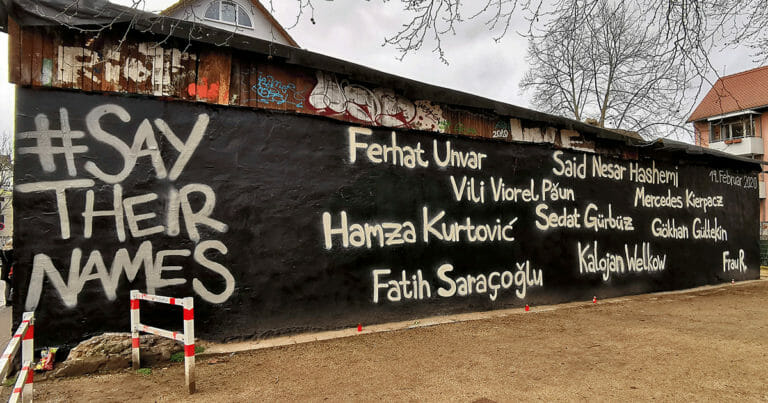 #SAY
THEIR
NAMES
Ferhat Unvar
Said Nesar Hashemi
19. Februar 2020
Vili Viorel Păun
Mercedes Kierpacz
Hamza Kurtović
Sedat Gürbüz
Gökhan Gültekin
Fatih Saraçoğlu
Kalojan Welkow
Frau R
2020